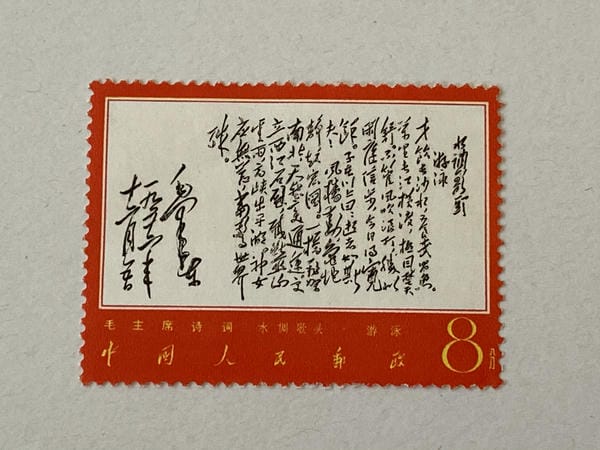 水调歌头
游泳
才饮长沙水，又食武昌鱼。
万里长江横渡，极目楚天
舒。不管风吹浪打，胜似
闲庭信步，今日得宽
馀。子在川上曰：逝者如斯
夫！风樯动，龟蛇
静，起宏图。一桥飞架
南北，天堑变通途。更
立西江石壁，截断巫山
云雨，高峡出平湖。神女
应无恙，当惊世界
殊。
毛泽东
一九五六年
十二月五日
毛主席诗词 水调歌头·游泳
中国人民邮政
8分